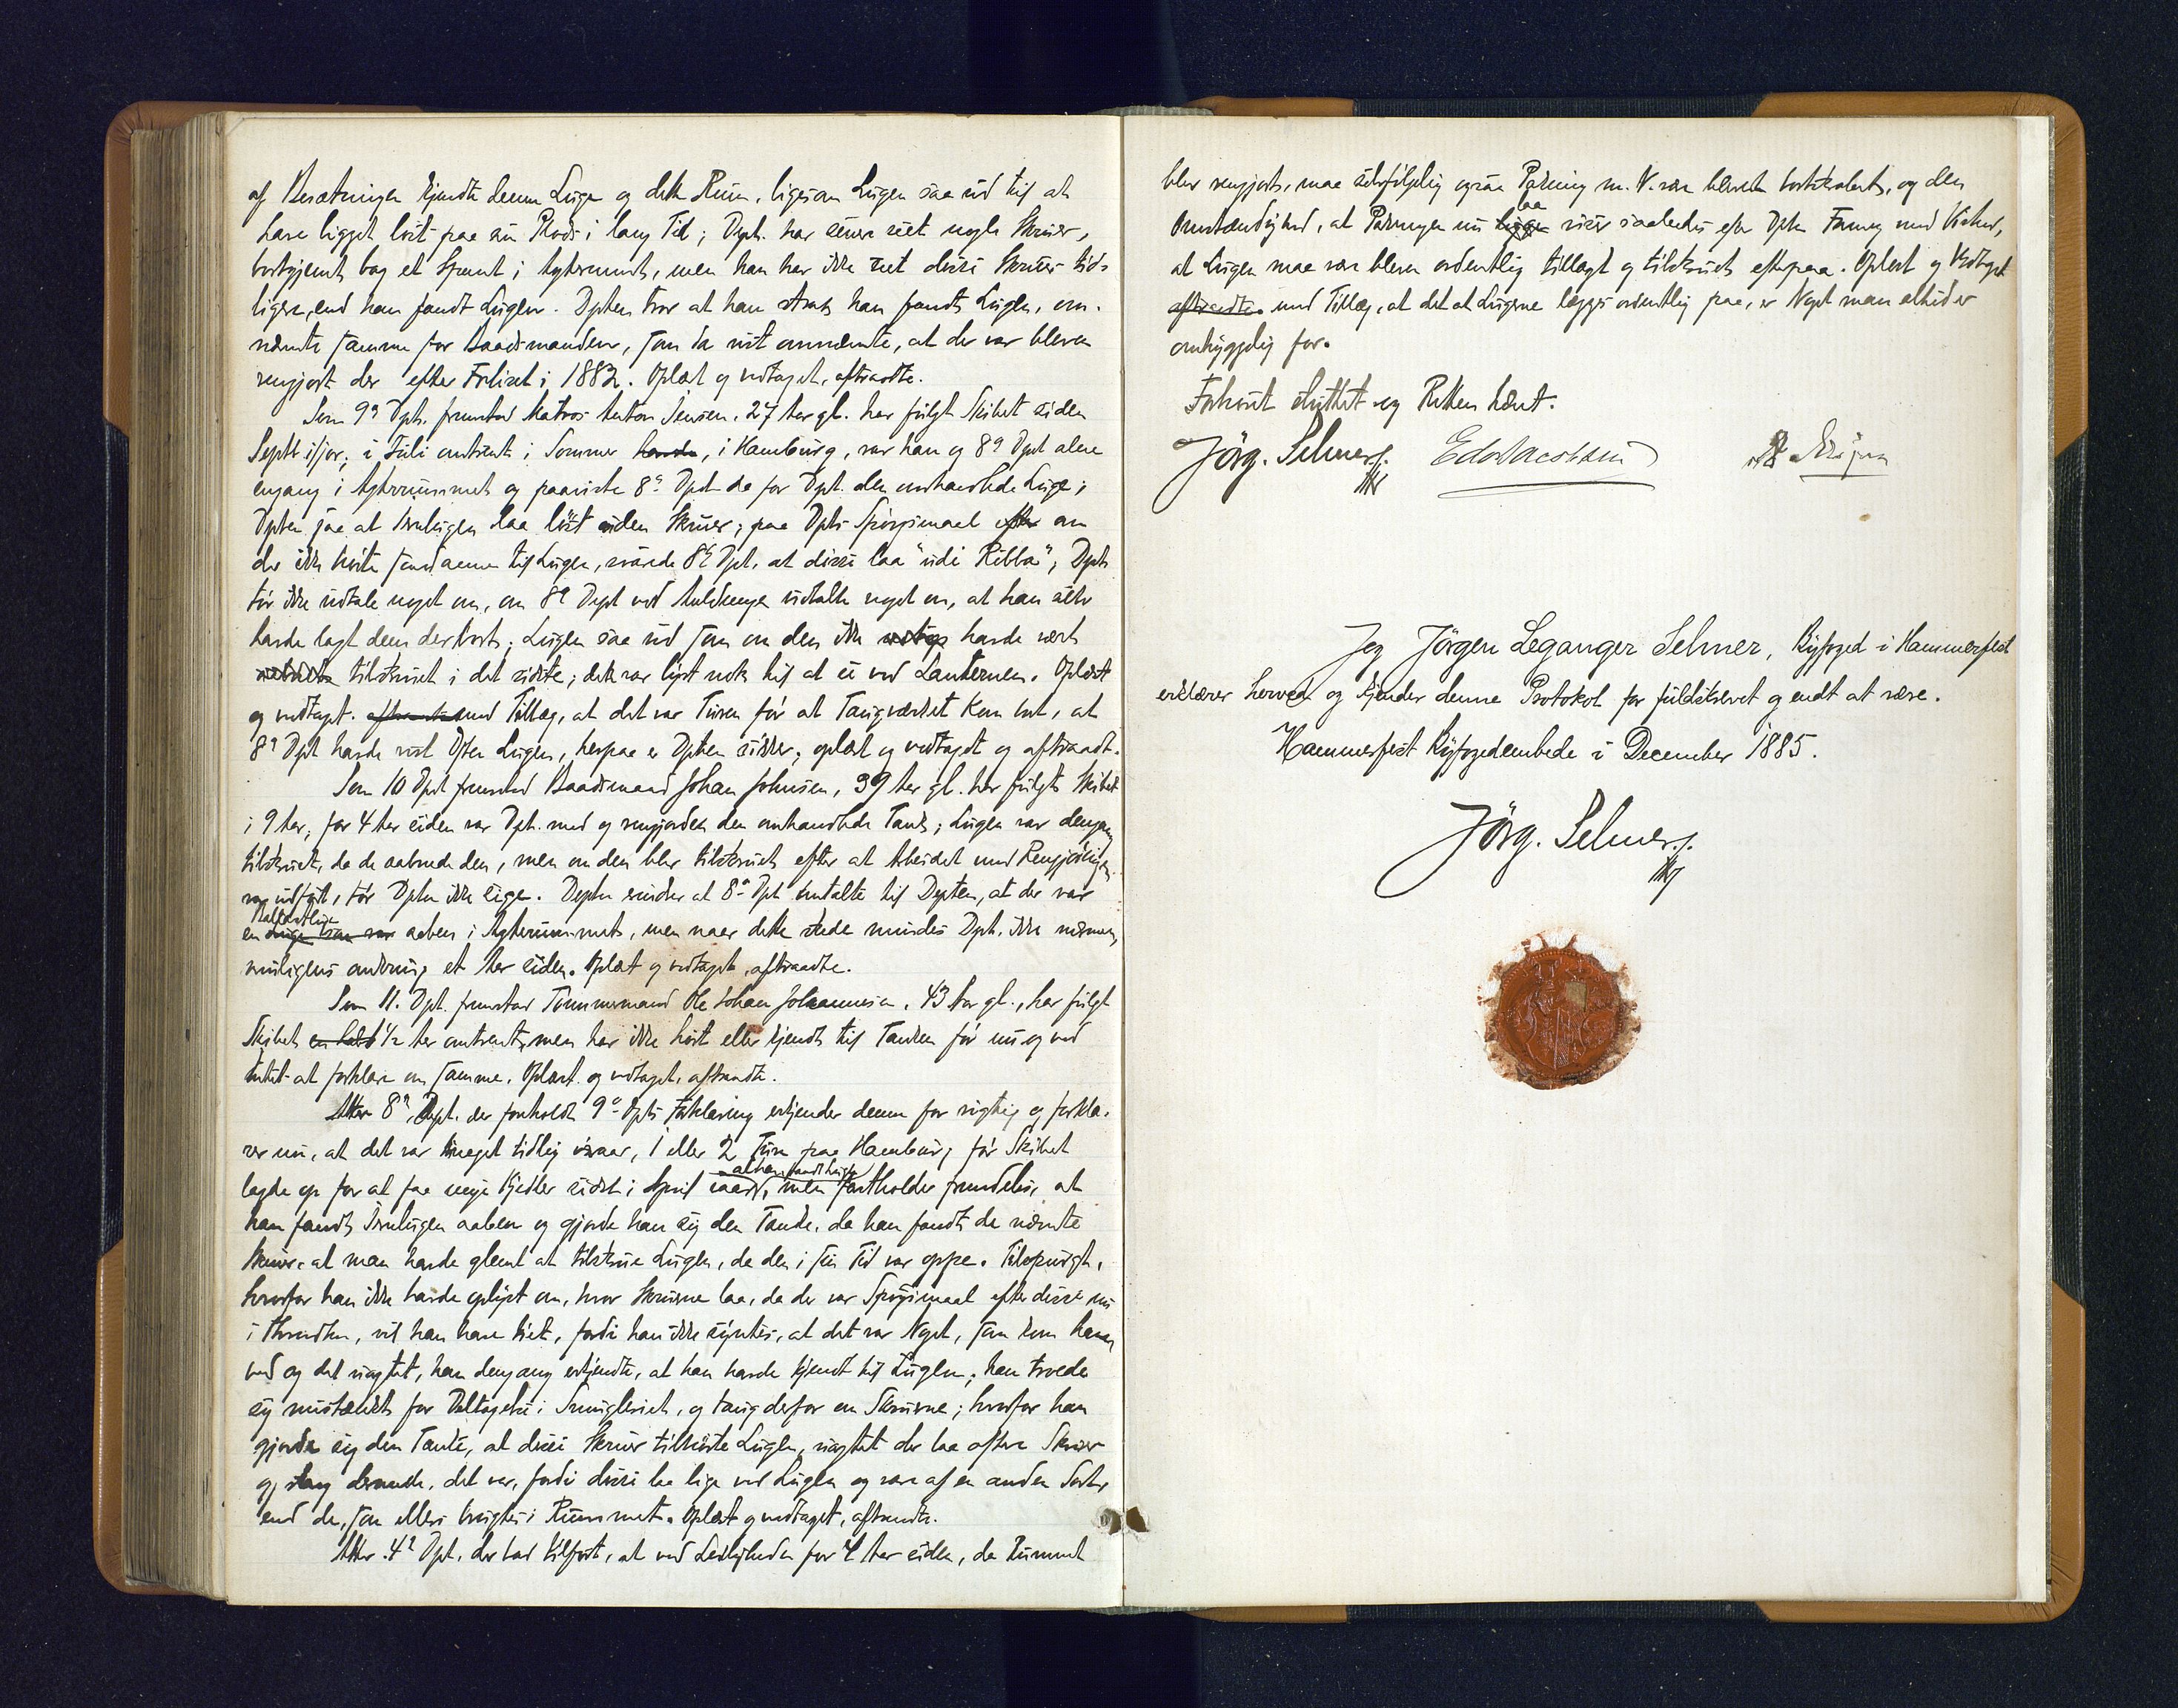 af Besætningen kjendte denne Luge og dette Rum, ligesom Lugen saa ud til at
have ligget löst paa sin Plads i lang Tid; Dept. har senere seet nogle Skruer,
bortgjemt bag et Spant i Agterrummet, men han har ikke seet disse Skruer tid-
ligere, end han fandt Lugen. Dpten tror at han strax han fandt Lugen, om-
nævnte samme for Baadsmanden, som da vist omnævnte, at der var bleven
rengjort der efter Forliset i 1882. Oplæst og vedtaget, aftraadte.
Som 9de Dpt. fremstod Matros Anton Jensen, 27 Aar gl. har fulgt Skibet siden
Septr ifjor; i Juli omtrent i Sommer havde, i Hamburg, var han og 8de Dpt alene
engang i Agterrummet og paaviste 8de Dpt da for Dpt. den omhandlede Luge;
Dpten saa at Jernlugen laa löst uden Skruer; paa Dpts Spörgsmaal efter om
der ikke hörte Skruerne til Lugen, svarede 8de Dpt, at disse laa "udi Ribba"; Dpt
tör ikke udtale noget om, om 8de Dept ved Anledningen udtalte noget om, at han selv
havde lagt dem derbort; Lugen saa ud som om den ikke havde vært
tilskruet i det sidste; dette var lyst nok til at se ved Lanternen. Oplæst
og vedtaget. aftraadte med Tillæg, at det var Turen för at Taugværket kom bort, at
8de Dpt havde vist Dpten Lugen, herpaa er Dpten sikker; oplæst og vedtaget og aftraadt.
Som 10 Dpt fremstod Baadsmand Johan Johnsen, 39 Aar gl. har fulgt Skibet
i 9 Aar; for 4 Aar siden var Dpt. med og rengjorde den omhandlede Tank; Lugen var dengang
tilskruet, da de aabnede den, men om den blev tilskruet efter at Arbeidet med Rengjöringen
var udfört, tör Dpten ikke sige. Depten erindrer at 8de Dpt omtalte til Depten, at der var
Ballastluge
en Luge som var aaben i Agterrummet, men naar dette skede mindes Dpt. ikke nærmere,
muligens omkring et Aar siden. Oplæst og vedtaget, aftraadte.
Som 11. Dpt. fremstod Tömmermand Ole Johan Johannesen, 43 Aar gl., har fulgt
Skibet en halv ½ Aar omtrent, men har ikke hört eller kjendt til Tanken för nu og ved
Intet at forklare om samme. Oplæst og vedtaget, aftraadte.
Atter 8de Dept. der foreholdt 9de Dpts Forklaring erkjender denne for rigtig og forkla-
rer nu, at det var meget tidlig ivaar, 1 eller 2 Ture paa Hamburg för Skibet
at han fandt Lugen
lagde op for at faa nye Kjedler sidst i April iaar, men fastholder fremdeles, at
han fandt Jernlugen aaben og gjorde han sig den Tanke, da han fandt de nævnte
Skruer at man havde glemt at tilskrue Lugen, da den i sin Tid var oppe. Tilspurgt,
hvorfor han ikke havde oplyst om, hvor Skruerne laa, da der var Spörgsmaal efter disse nu
i Throndhm, vil han have tiet, fordi han ikke syntes, at det var Noget, som kom ham
ved og det uagtet, han dengang erkjendte, at han havde kjendt til Lugen; han troede
sig mistænkt for Deltagelse i Smugleriet, og taug derfor om Skruerne; hvorfor han
gjorde sig den Tanke, at disse Skruer tilhörte Lugen, uagtet der laa oftere Skruer
og slang dernede, det var, fordi disse laa lige ved Lugen og vare af en anden Sort,
end de, som ellers brugtes i Rummet. Oplæst og vedtaget, aftraadte.
Atter 4de Dpt. der bad tilfört, at ved Leiligheden for 4 Aar siden, da Rummet
blev rengjort, maa selvfölgelig ogsaa Pakning m. V. være blevet borttaget, og den
laa
Omstændighed, at Pakningen nu ligger viser saaledes efter Dpten Formening med Vished,
at Lugen maa være bleven ordentlig tillagt og tilskruet efterpaa. Oplæst og Vedtaget
aftraadte med Tillæg, at det at Lugerne lægges ordentlig paa, er Noget man altid er
omhyggelig for.
Forhöret sluttet og Retten hævet.
Jörg. Selmer. Edv. Jacobsen
Jeg Jörgen Leganger Selmer, Byfoged i Hammerfest
erklærer herved og kjender denne Protokol for fuldskrevet og endt at være.
Hammerfest Byfogedembede i December 1885.
Jörg. Selmer.